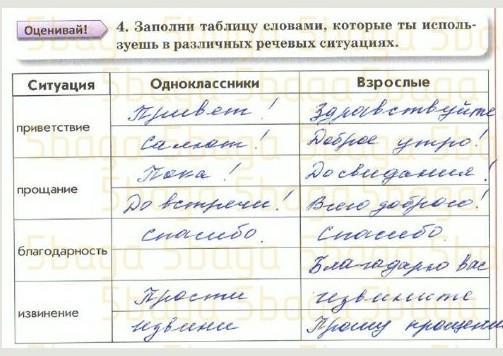 Оценивай!
4. Заполни таблицу словами, которые ты исполь-
зуешь в различных речевых ситуациях.
Ситуация Одноклассники Взрослые
приветствие Привет! Здравствуйте
Салют! Доброе утро!
прощание Пока! До свидания!
До встречи! Всего доброго!
благодарность Спасибо. Спасибо.
Благодарю вас
извинение Прости извините
извини Прошу прощения
5baga 5baga 5baga